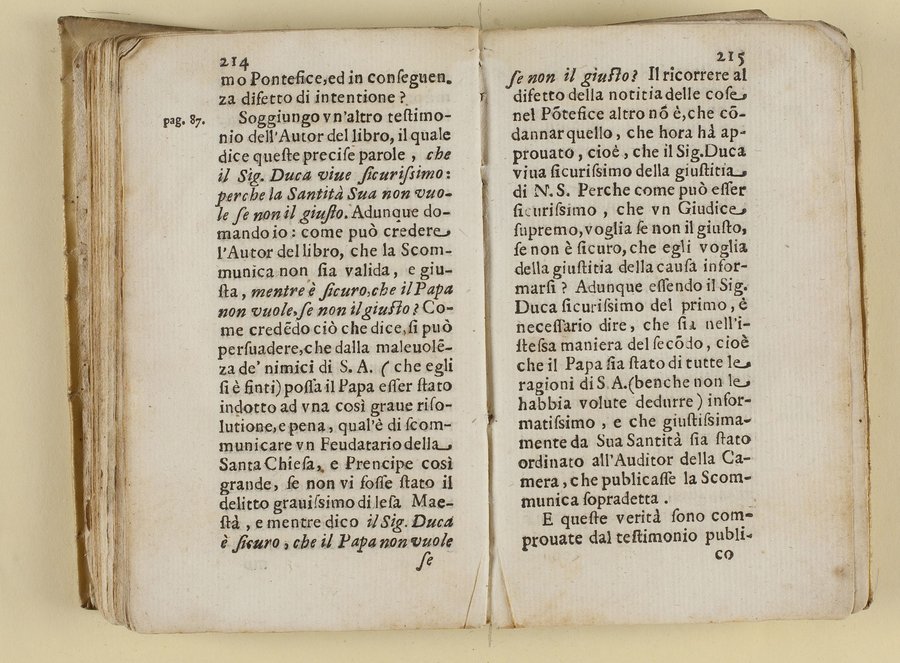 214
mo Pontefice,ed in conſeguen-
za difetto di intentione ?
pag. 87.
Soggiungo vn'altro teſtimo-
nio dell'Autor del libro, il quale
dice queſte preciſe parole , che
il Sig. Duca viue ſicuriſsimo:
perche la Santità Sua non vuo-
le ſe non il giuſto. Adunque do-
mando io : come può credere
l'Autor del libro, che la Scom-
munica non ſia valida , e giu-
ſta, mentre è ſicuro,che il Papa
non vuole,ſe non il giuſto ? Co-
me credẽdo ciò che dice,ſi può
perſuadere,che dalla maleuolẽ-
za de' nimici di S. A. ( che egli
ſi è finti) poſſa il Papa eſſer ſtato
indotto ad vna così graue riſo-
lutione,e pena , qual'è di ſcom-
municare vn Feudatario della
Santa Chieſa, e Prencipe così
grande, ſe non vi foſſe ſtato il
delitto grauiſsimo di leſa Mae-
ſtà , e mentre dico il Sig. Duca
è ſicuro , che il Papa non vuole
ſe
215
ſe non il giuſto? Il ricorrere al
difetto della notitia delle coſe
nel Põtefice altro nõ è,che cõ-
dannar quello , che hora hà ap-
prouato , cioè , che il Sig.Duca
viua ſicuriſsimo della giuſtitia
di N. S. Perche come può eſſer
ſicuriſsimo , che vn Giudice
ſupremo,voglia ſe non il giuſto,
ſe non è ſicuro, che egli voglia
della giuſtitia della cauſa infor-
marſi ? Adunque eſſendo il Sig.
Duca ſicuriſsimo del primo , è
neceſſario dire, che ſia nell'i-
ſteſsa maniera del ſecõdo , cioè
che il Papa ſia ſtato di tutte le
ragioni di S A.(benche non le
habbia volute dedurre ) infor-
matiſsimo , e che giuſtiſsima-
mente da Sua Santità ſia ſtato
ordinato all'Auditor della Ca-
mera , che publicaſſe la Scom-
munica ſopradetta .
E queſte verità ſono com-
prouate dal teſtimonio publi-
co